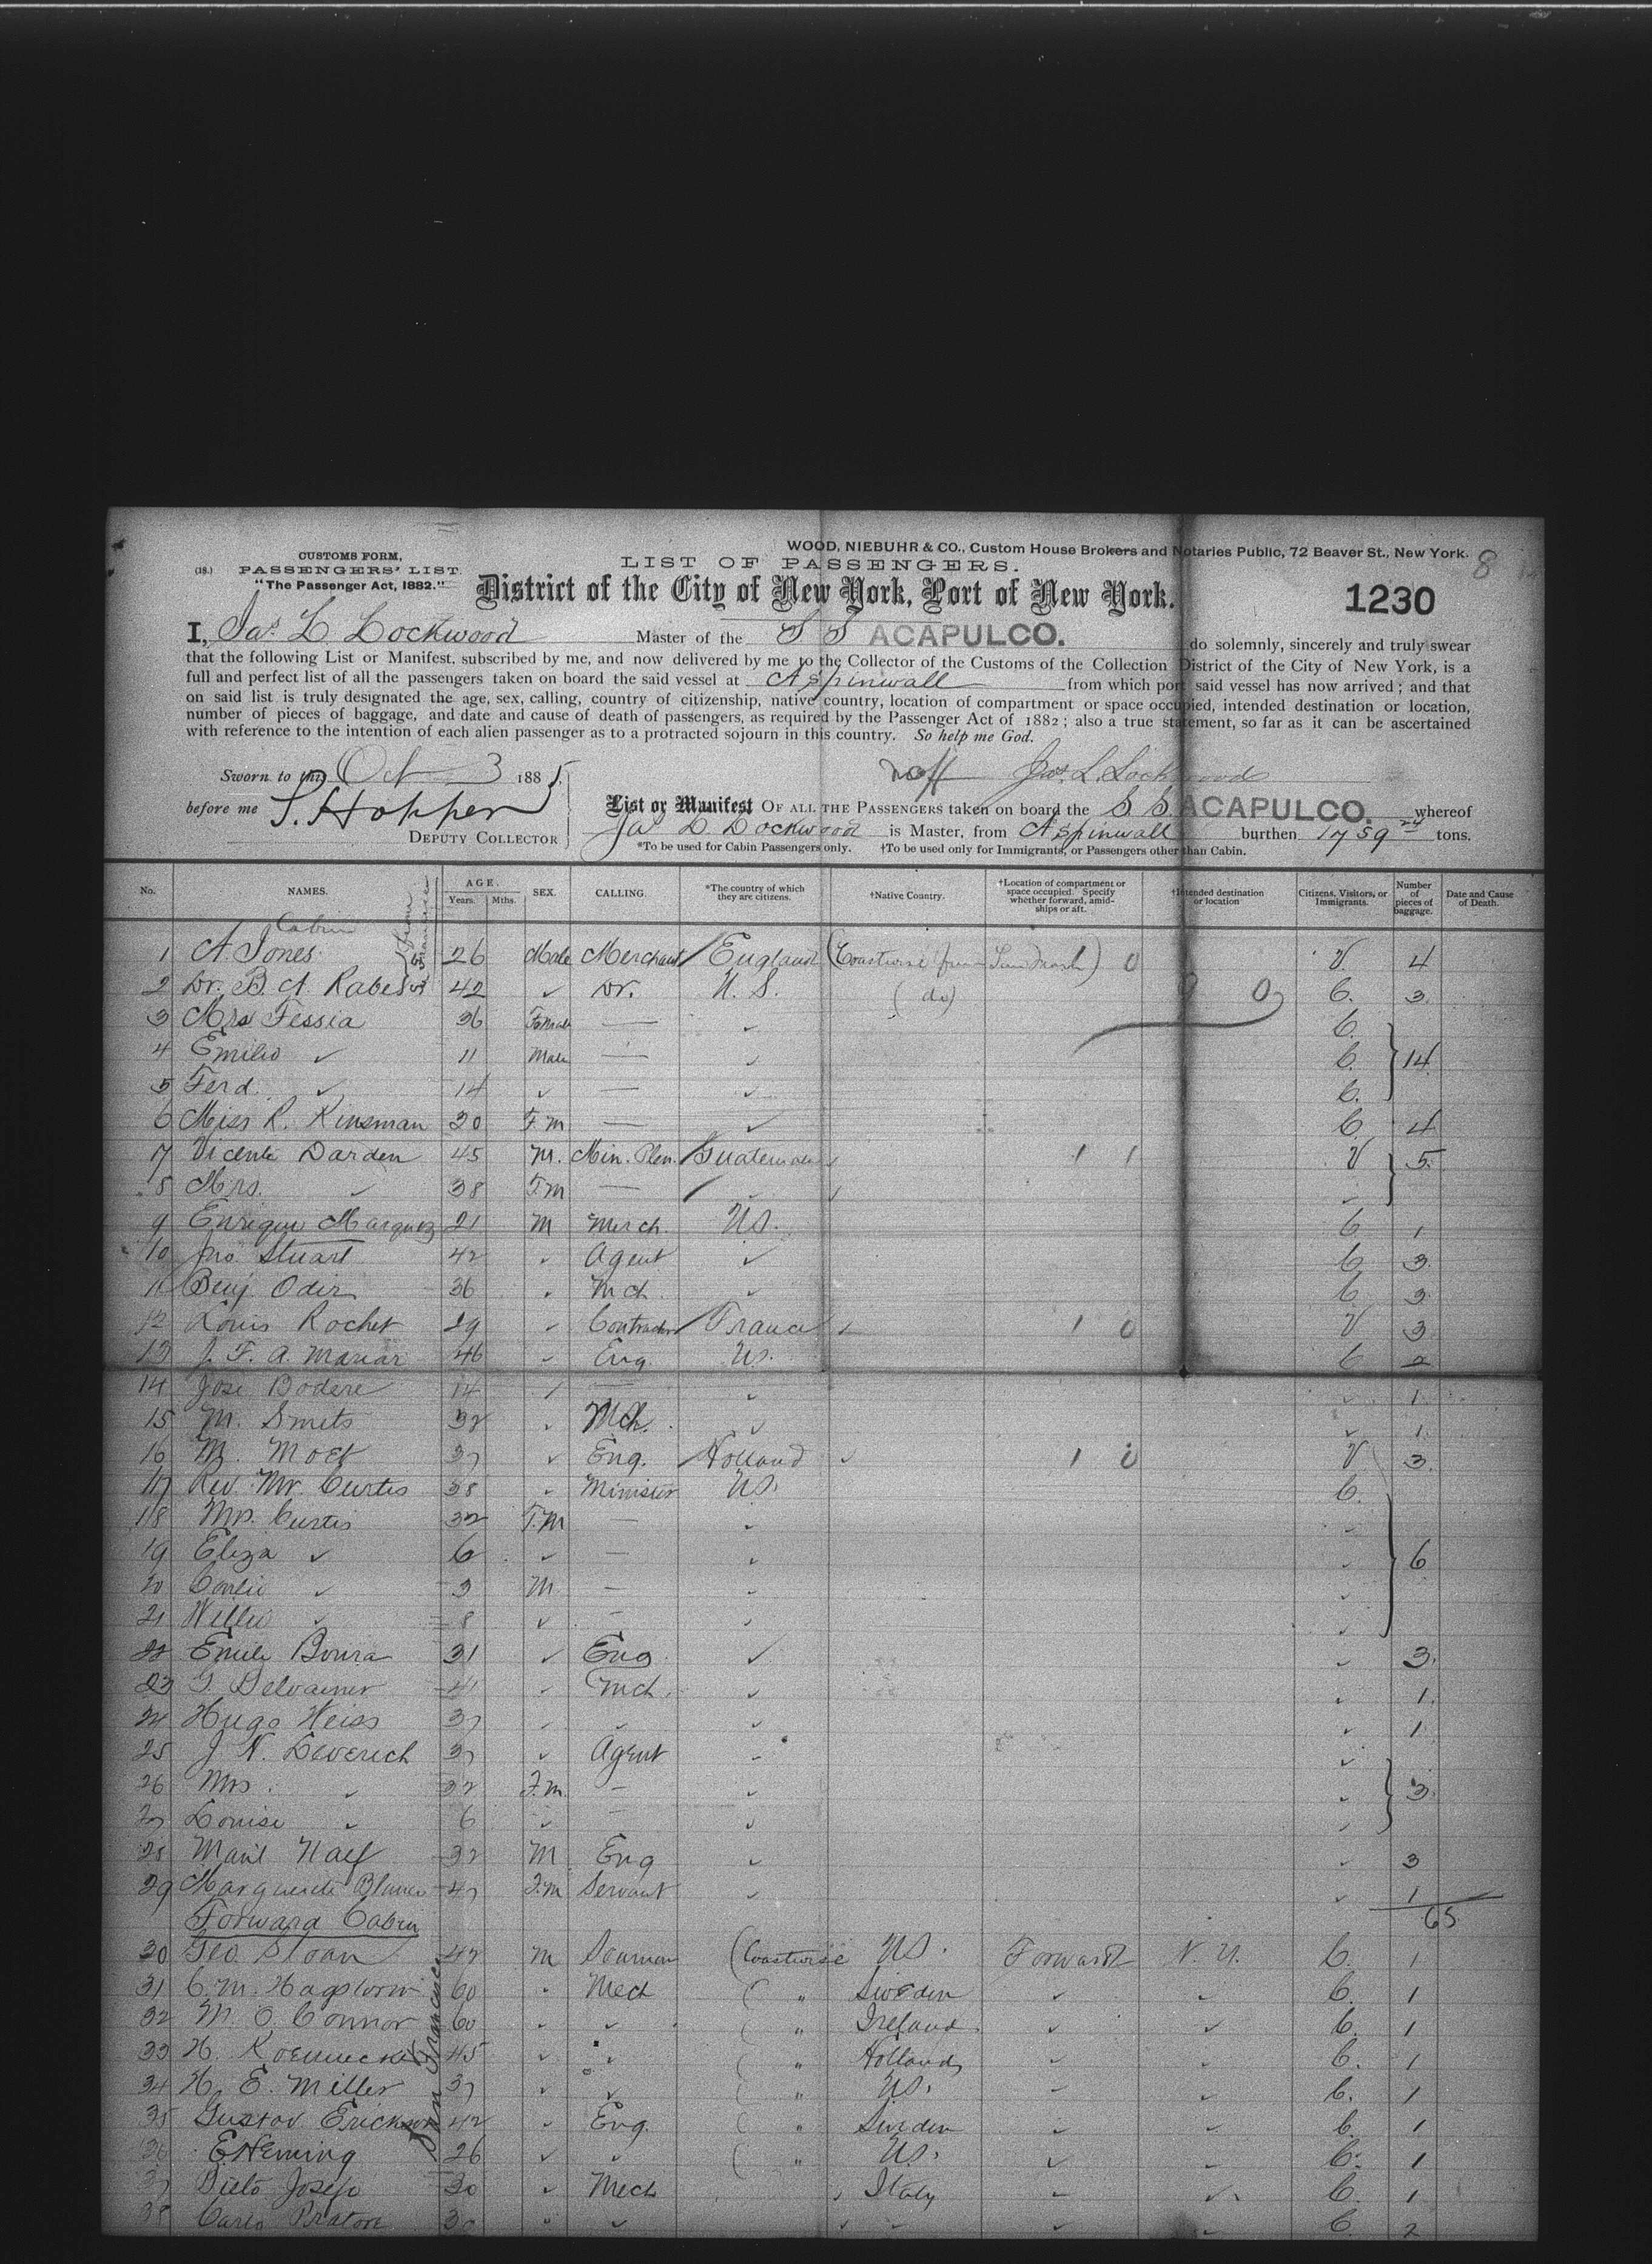 WOOD, NIEBUHR & CO., Custom House Brokers and Notaries Public, 72 Beaver St., New York.
8
(18.) CUSTOMS FORM,
PASSENGERS' LIST.
"The Passenger Act, 1882."
LIST OF PASSENGERS.
District of the City of New York, Port of New York.
1230
I, Jas. L Lockwood Master of the S S ACAPULCO. do solemnly, sincerely and truly swear
that the following List or Manifest, subscribed by me, and now delivered by me to the Collector of the Customs of the Collection District of the City of New York, is a
full and perfect list of all the passengers taken on board the said vessel at Aspinwall from which port said vessel has now arrived; and that
on said list is truly designated the age, sex, calling, country of citizenship, native country, location of compartment or space occupied, intended destination or location,
number of pieces of baggage, and date and cause of death of passengers, as required by the Passenger Act of 1882; also a true statement, so far as it can be ascertained
with reference to the intention of each alien passenger as to a protracted sojourn in this country. So help me God.
Sworn to this Oct 3 1885
Jas. L. Lockwood
before me S. Hopper
DEPUTY COLLECTOR
List or Manifest OF ALL THE PASSENGERS taken on board the S. S. ACAPULCO. whereof
Jas L Lockwood is Master, from Aspinwall burthen 1759 24 tons.
*To be used for Cabin Passengers only. †To be used only for Immigrants, or Passengers other than Cabin.
No. NAMES. AGE. Years. Mths. SEX. CALLING. *The country of which they are citizens. †Native Country. †Location of compartment or space occupied. Specify whether forward, amidships or aft. †Intended destination or location Citizens, Visitors, or Immigrants. Number of pieces of baggage. Date and Cause of Death.
Cabin
1 A. Jones 26 Male Merchant England (Coastwise from San Franck) 0 V. 4
2 Dr. B. A. Rabe 42 ✓ Dr. U. S. (do) 0 C. 3
3 Mrs Fessia 36 Female — ✓ C.
4 Emilio ✓ 11 Male — ✓ C. 14
5 Ferd. ✓ 14 ✓ — ✓ C.
6 Miss R. Kinsman 20 F.m — ✓ C. 4
7 Vicente Darden 45 M. Min. Plen. Guatemala 1 1 V 5
8 Mrs. ✓ 38 F.m — ✓
9 Enrique Marquez 21 M Merch. US. C 1
10 Jno Stuart 42 ✓ Agent ✓ C 3
11 Benj Odir 36 ✓ Mch ✓ C 3
12 Louis Rochet 29 ✓ Contractor France 1 0 V 3
13 J. F. A. Mariar 46 ✓ Eng US. C 2
14 Jose Bodere 14 ✓ — ✓ ✓ 1
15 M. Smets 32 ✓ Mch. ✓ ✓ 1
16 M. Moet 37 ✓ Eng. Holland ✓ 1 0 V 3
17 Rev. Mr. Curtis 38 ✓ Minister US. C.
18 Mrs. Curtis 32 F.M — ✓ ✓
19 Eliza ✓ 6 ✓ — ✓ ✓ 6
20 ✓ 3 M — ✓ ✓
21 Willie ✓ 8 ✓ — ✓ ✓
22 Emile Boura 31 ✓ Eng ✓ ✓ 3
23 41 ✓ Mch. ✓ ✓ 1
24 Hugo Weiss 37 ✓ ✓ ✓ ✓ 1
25 J. N. Leverich 37 ✓ Agent ✓ ✓
26 Mrs. ✓ 32 F.m — ✓ ✓ 3
27 Louise ✓ 6 ✓ — ✓ ✓
28 32 M Eng ✓ ✓ 3
29 Marguerite 47 F.m Servant ✓ ✓ 1
65
Forward Cabin
San Francisco
30 Geo Sloan 42 M Seaman (Coastwise US. Forward N. Y. C. 1
31 C. M. 60 ✓ Mech ( " Sweden ✓ ✓ C. 1
32 M. O. Connor 60 ✓ ✓ ( " Ireland ✓ ✓ C. 1
33 H. 45 ✓ ✓ ( " Holland ✓ ✓ C. 1
34 H. E. Miller 37 ✓ ✓ ( " US. ✓ ✓ C. 1
35 Gustav Erickson 42 ✓ Eng. ( " Sweden ✓ ✓ C. 1
36 E Heming 26 ✓ ✓ ( " US. ✓ ✓ C. 1
37 Josefo 30 ✓ Mech Italy ✓ ✓ C. 1
38 Carlo Pratore 30 ✓ ✓ ✓ ✓ ✓ C. 2